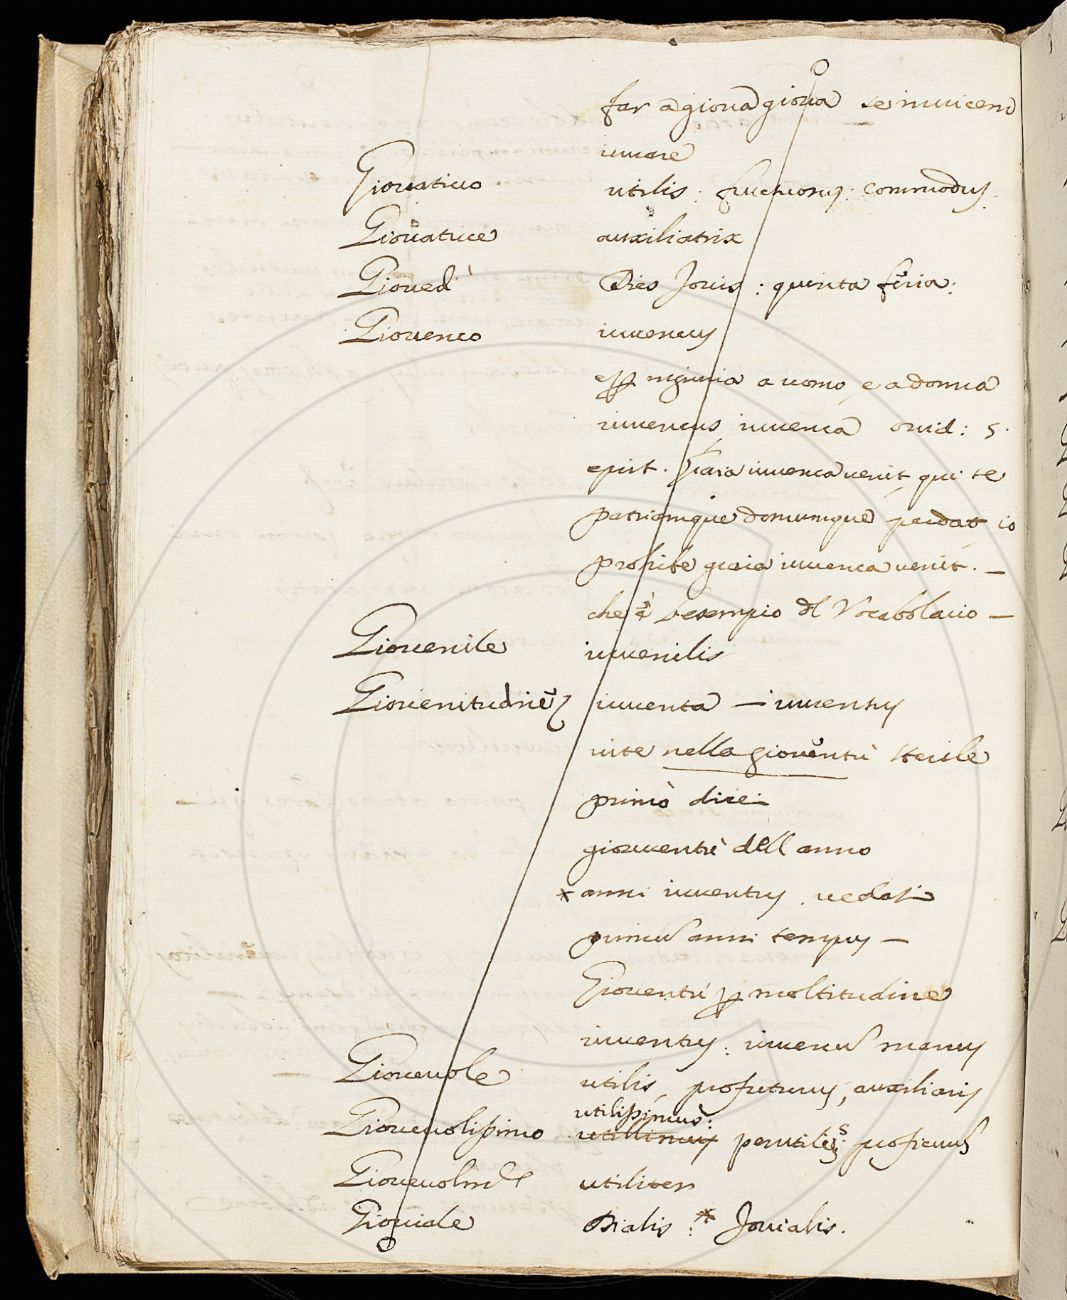 far a giova giova se invicem
iuvare
Giovativo utilis. fructuosus. commodus.
Giovatrice auxiliatrix
Giovedì Dies Jovis: quinta feria:
Giovenco iuvencus
a uomo, e a donna
iuvencus iuvenca ovid: 5.
epist. Graia iuvenca venit, qui te
patriamque domumque perdat io
prohibe graia iuvenca venit. —
che è esempio del Vocabolario —
Giovenile iuvenilis
iuventa — iuventus
nella gioventù sterile
primo
gioventù dell anno
* anni iuventus. vedasi
primum anni tempus —
Gioventù per moltitudine
iuventus: iuvenum manus
Giovevole utilis, profuturus, auxiliaris
utilissimus:
Giovevolissimo perutilis:
utiliter
Gioviale Dialis: * Jovialis.